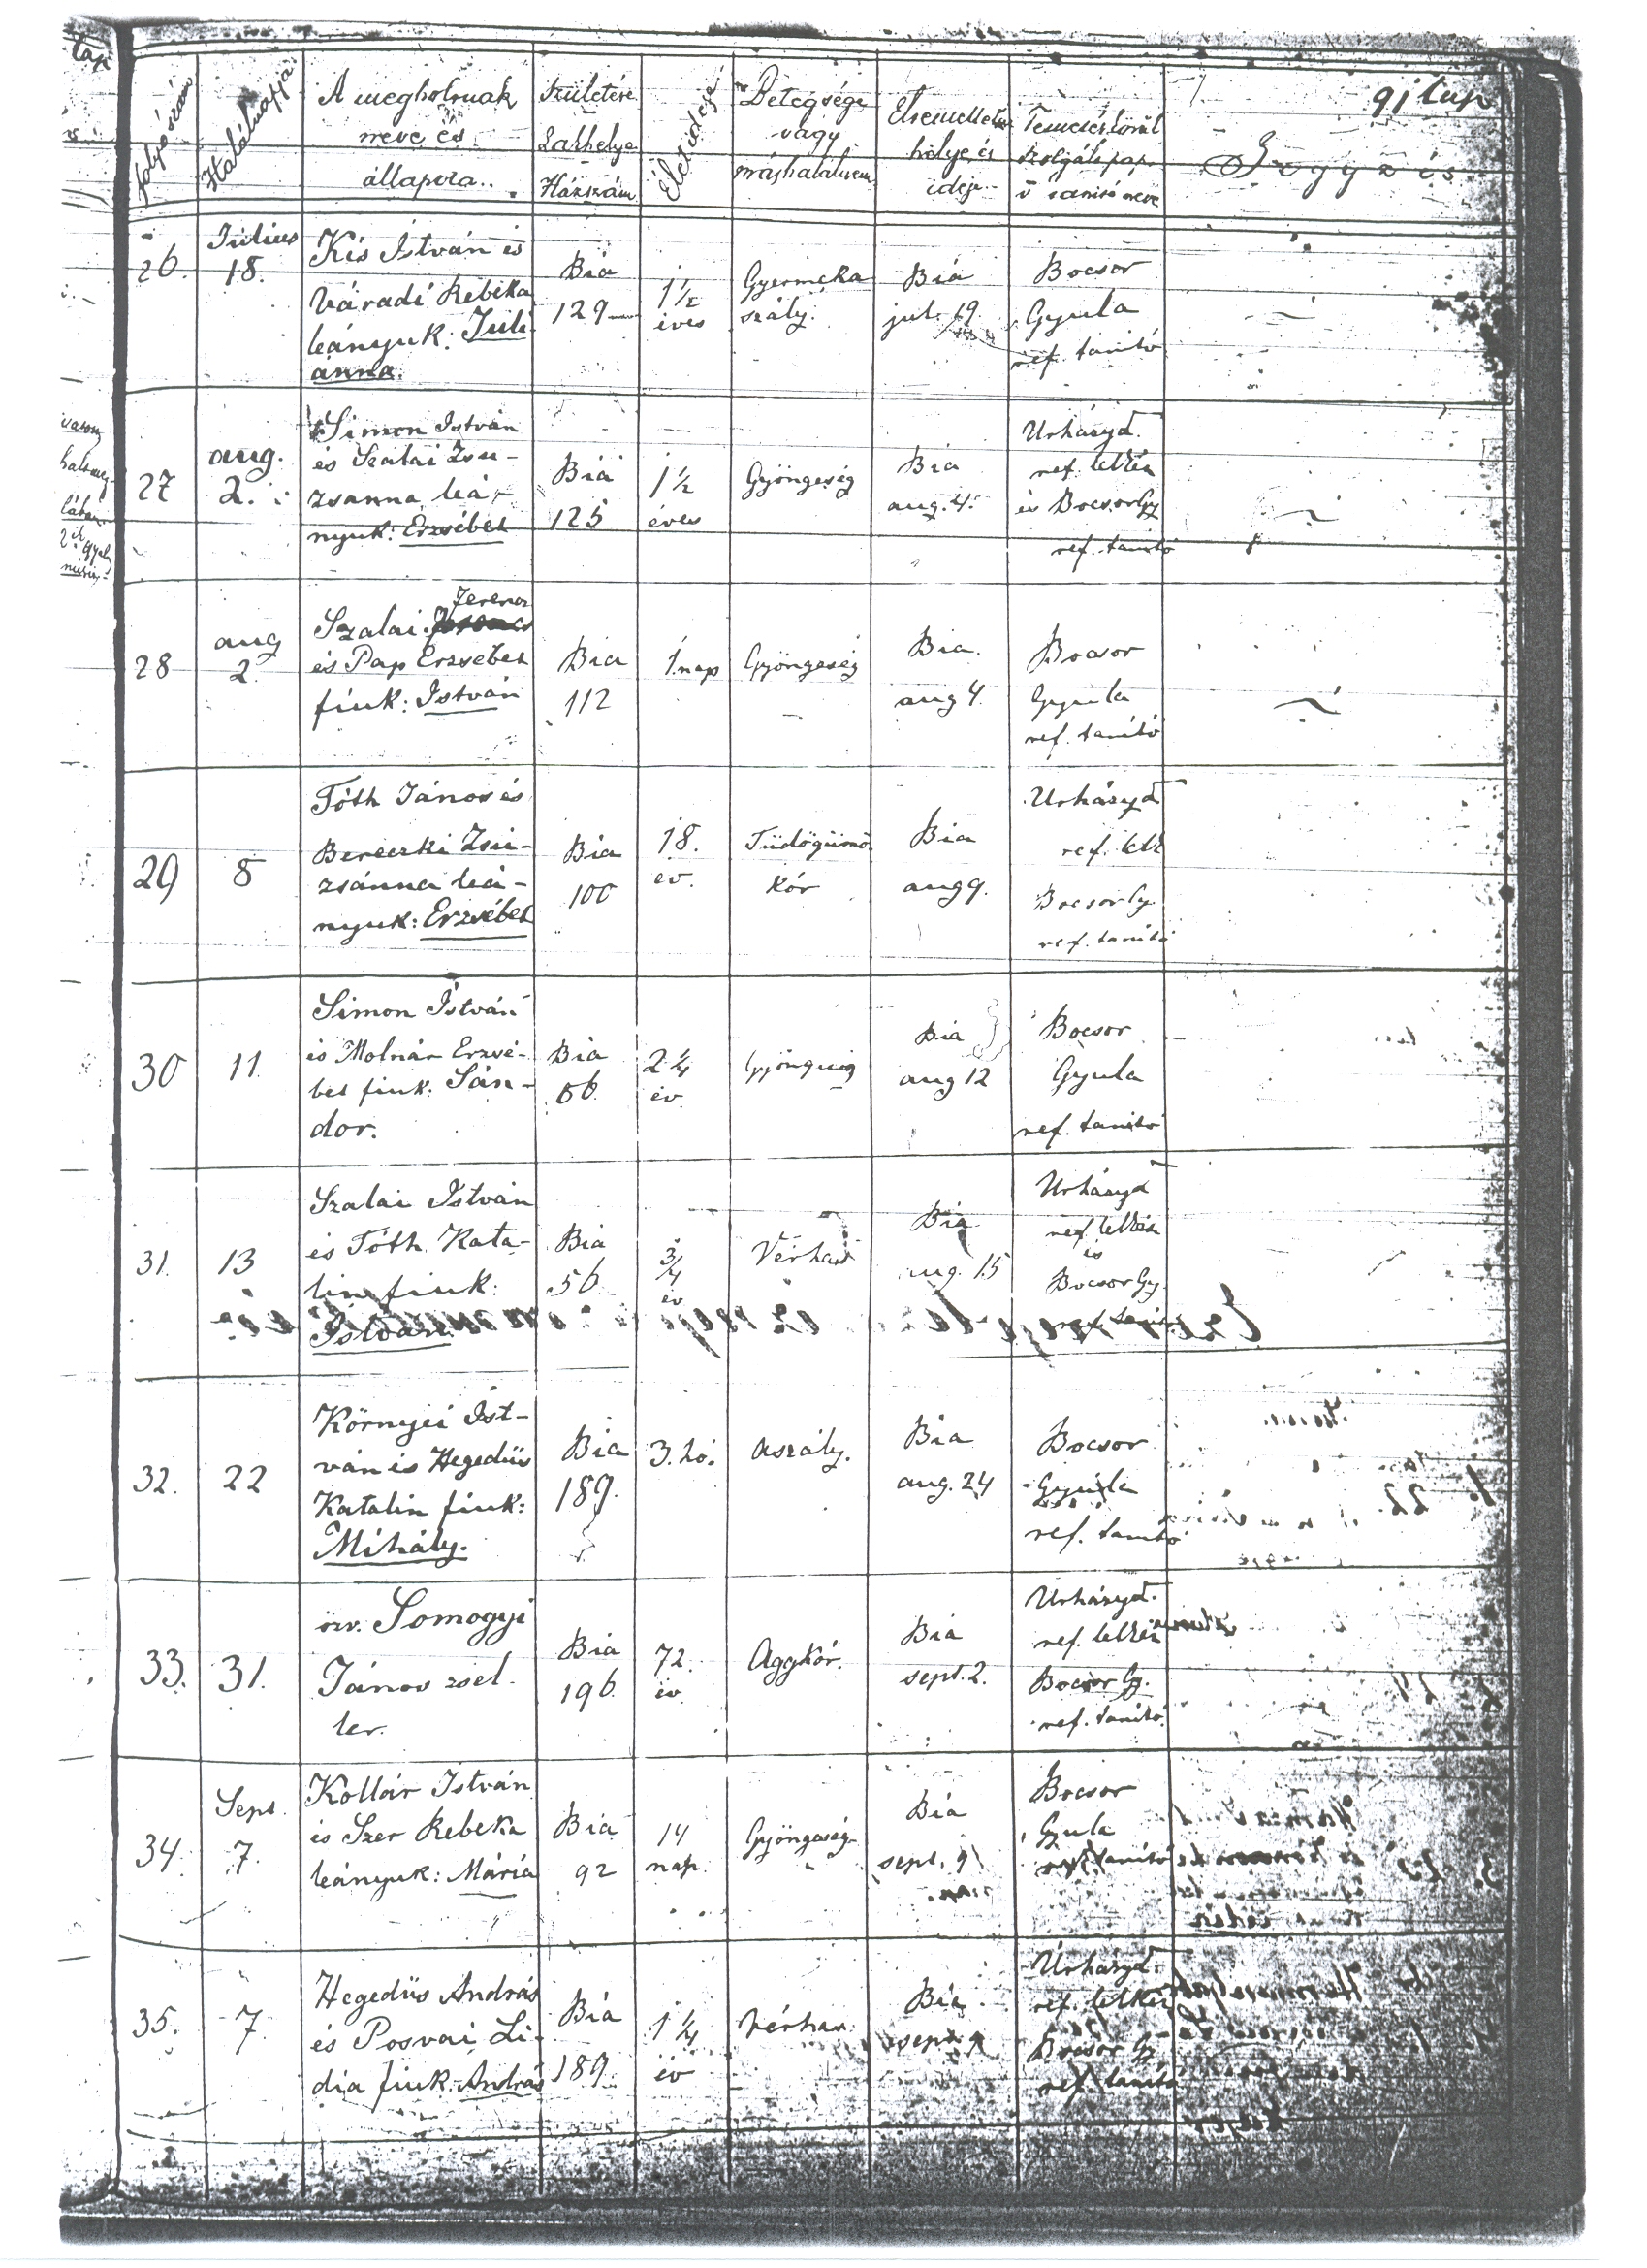 91 lap
folyószám
Halálnapja
A megholtnak
neve és
állapota.
Születése
Lakhelye
Házszám
Életideje
Betegsége
vagy
máshalálnem
Eltemettetés
helye, és
ideje
Temetéskörül
szolgáló pap
v tanitó neve
Jegyzés
26.
Július
18.
Kis István és
Váradi Rebeka
leányuk: Juli
anna.
Bia
129
1½
éves
Gyermeka
szály.
Bia
jul. 19
Bocsor
Gyula
ref. tanitó
27
aug.
2.
Simon István
és Szalai Zsu-
zsanna leá-
nyuk: Erzsébet
Bia
125
1½
éves
Gyöngeség
Bia
aug. 4.
Urházyd.
ref. lelkész
és Bocsor Gy
ref. tanitó
28
aug
2.
Ferencz
Szalai
és Pap Erzsébet
fiuk: István
Bia
112
1 nap
Gyöngeség
Bia.
aug 4.
Bocsor
Gyula
ref. tanitó
29
8
Tóth János és
Bereczki Zsu-
zsánna leá-
nyuk: Erzsébet
Bia
100
18.
év.
Tüdögümő
kór
Bia
aug 9.
Urházyd
ref. lelk
Bocsor Gy
ref. tanitó
30
11
Simon István
és Molnár Erzsé-
bet fiuk: Sán-
dor.
Bia
66.
2¼
év.
Gyöngeség
Bia
aug 12
Bocsor
Gyula
ref. tanitó
31.
13
Szalai István
és Tóth Kata-
lin fiuk:
István.
Bia
56
¾
év
Vérhas
Bia
aug. 15
Urházyd
ref. lelkész
és
Bocsor Gy.
ref tanitó
32.
22
Környei Ist-
ván és Hegedüs
Katalin fiuk:
Mihály.
Bia
189.
3. hó.
aszály.
Bia
aug. 24
Bocsor
Gyula
ref. tanitó
33.
31.
özv. Somogyi
János zsel
ler.
Bia
196.
72.
év.
Aggkór.
Bia
sept. 2.
Urházyd.
ref. lelkész
Bocsor Gy.
ref. tanitó.
34.
Sept.
7.
Kollár István
és Szer Rebeka
leányuk: Mária
Bia
92
14
nap.
Gyöngeség
Bia
sept. 9
Bocsor
Gyula
ref. tanitó
35.
7.
Hegedüs András
és Posvai Li-
dia fiuk: András
Bia
189.
1¼
év
Vérhas
Bia
sept. 9
Urházyd.
ref. lelkész
Bocsor Gy
ref. tanitó